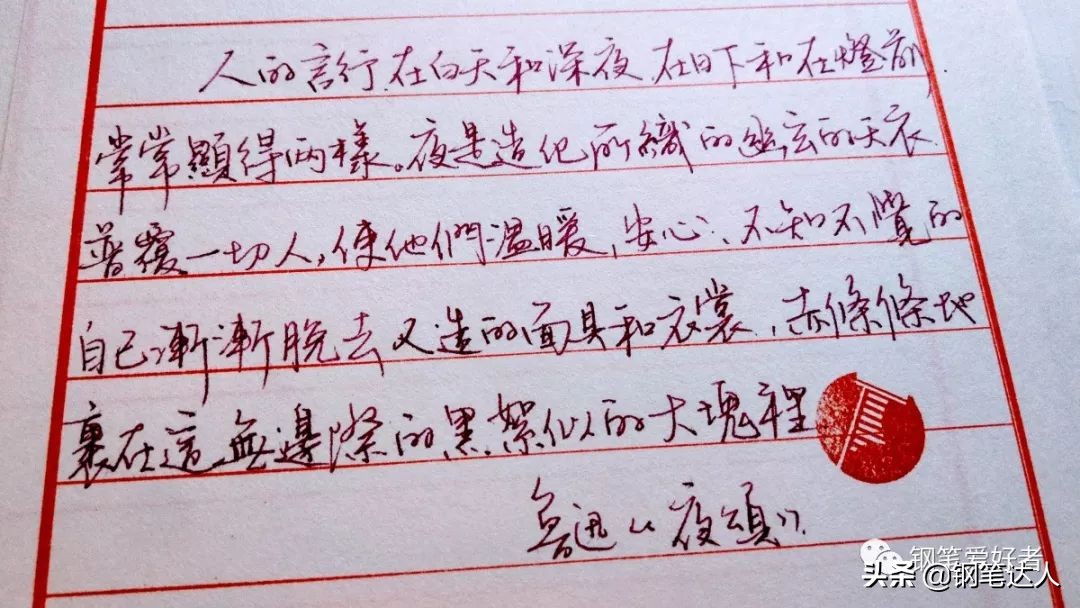 人的言行,在白天和深夜,在日下和在燈前,
常常顯得兩樣。夜是造化所織的幽玄的天衣,
普覆一切人,使他們溫暖,安心,不知不覺的
自己漸漸脫去人造的面具和衣裳,赤條條地
裹在這無邊際的黑絮似的大塊裡
魯迅《夜頌》
钢笔爱好者
头条 @钢笔达人